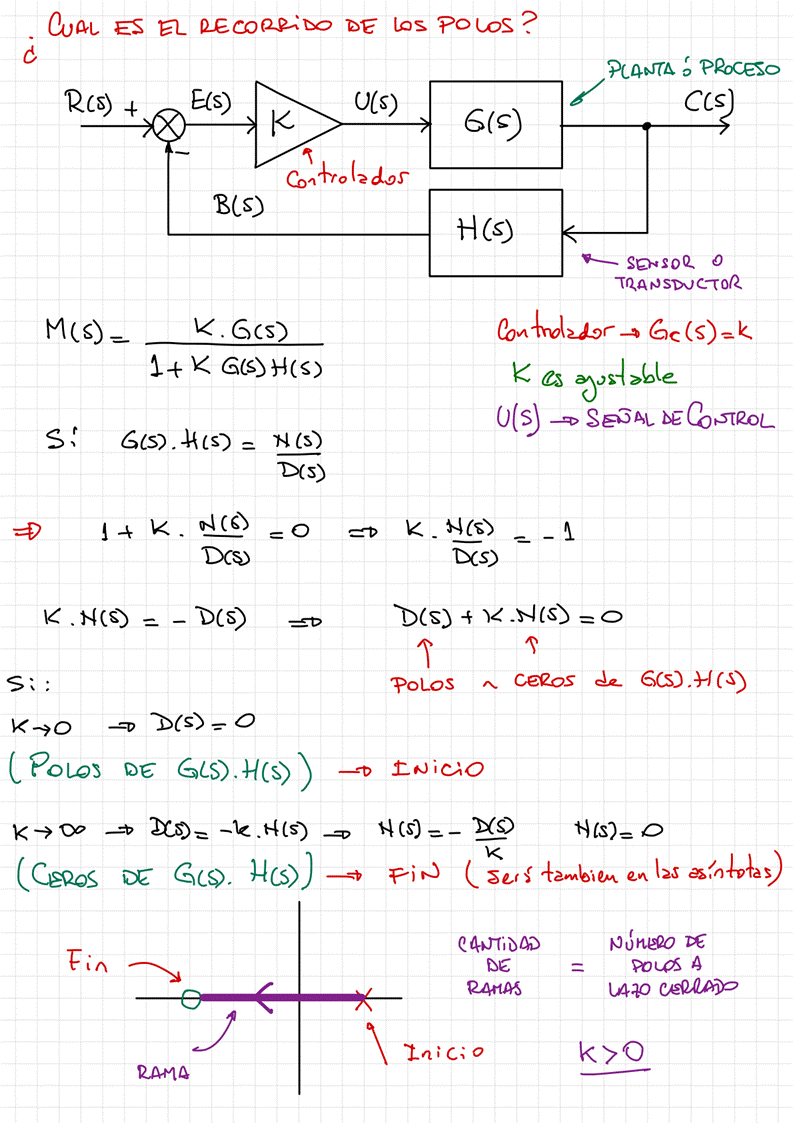 ¿CUAL ES EL RECORRIDO DE LOS POLOS?
PLANTA ó PROCESO
R(s) + E(s) K U(s) G(s) C(s)
−
Controlador
B(s) H(s)
SENSOR O
TRANSDUCTOR
M(s) = K.G(s) / 1+K G(s)H(s)
Controlador → Gc(s)=k
K es ajustable
U(s) → SEÑAL DE CONTROL
Si G(s).H(s) = N(s)/D(s)
⇒ 1 + K . N(s)/D(s) = 0 ⇒ K . N(s)/D(s) = -1
K.N(s) = - D(s) ⇒ D(s) + K.N(s) = 0
POLOS ~ CEROS de G(s).H(s)
Si:
K→0 ⇒ D(s) = 0
(POLOS DE G(s).H(s)) → INICIO
K→∞ → D(s) = -k.N(s) → N(s) = - D(s)/K N(s) = 0
(CEROS DE G(s). H(s)) → FIN (será tambien en las asíntotas)
Fin
CANTIDAD DE RAMAS = NÚMERO DE POLOS A LAZO CERRADO
RAMA
Inicio
K>0